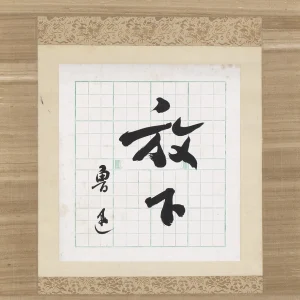 放下
魯迅